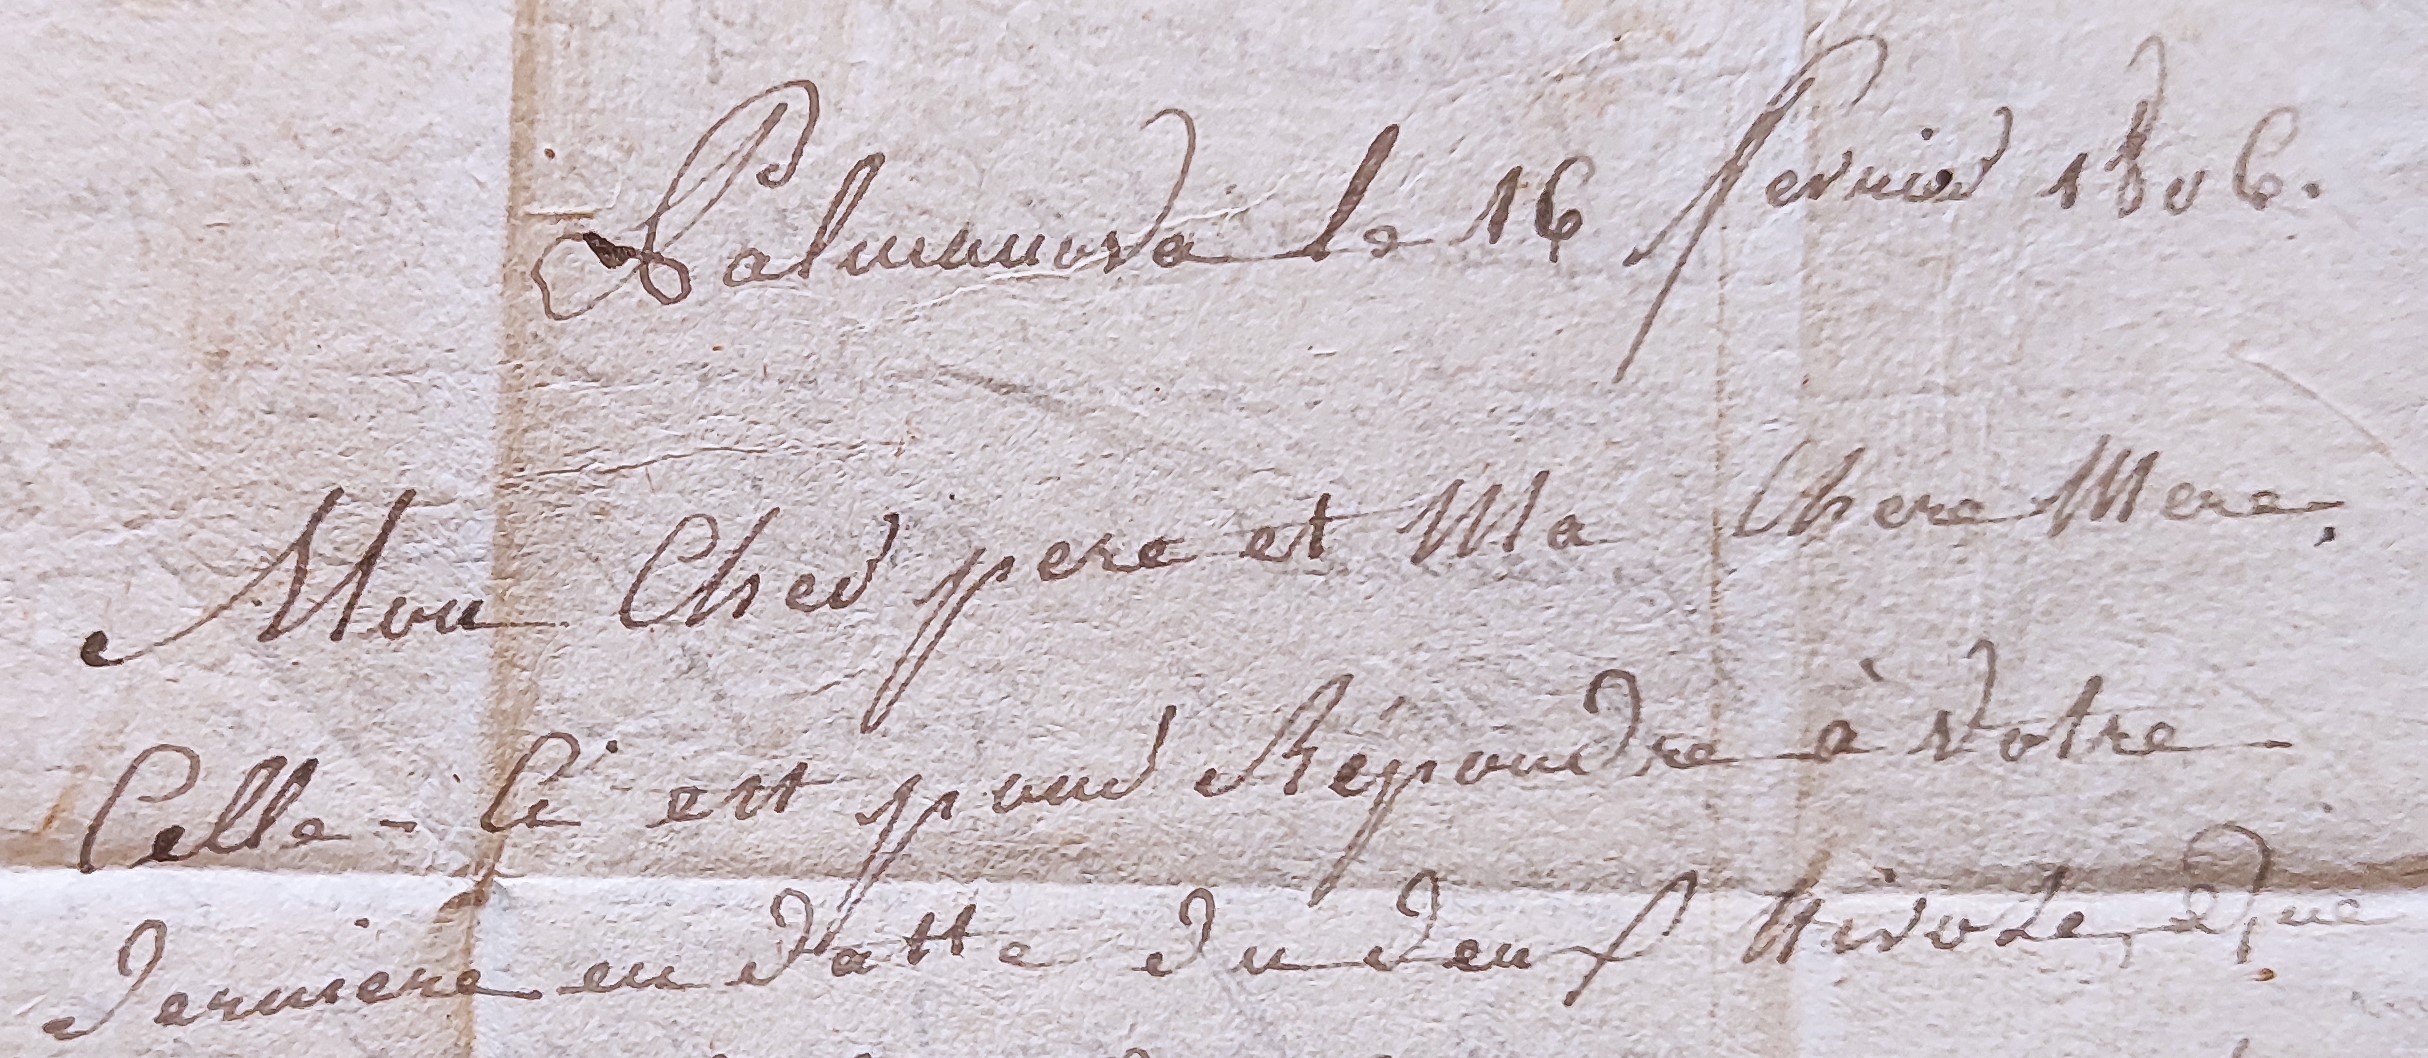 Palmanova le 16 fevrier 1806.
Mon Cher pere et Ma Chere Mere,
Celle-Ci est pour Répondre à votre
derniere en datte du deux Nivose, que